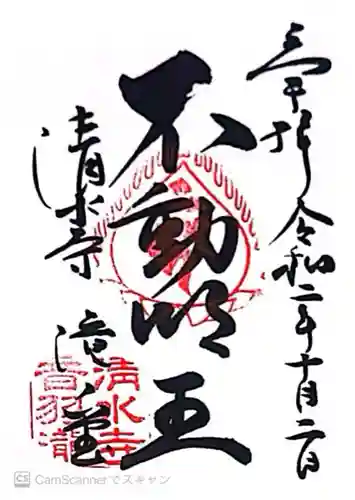 奉拝 令和二年十月二日
不動明王
清水寺 滝堂
清水寺
音羽瀧
CS CamScannerでスキャン